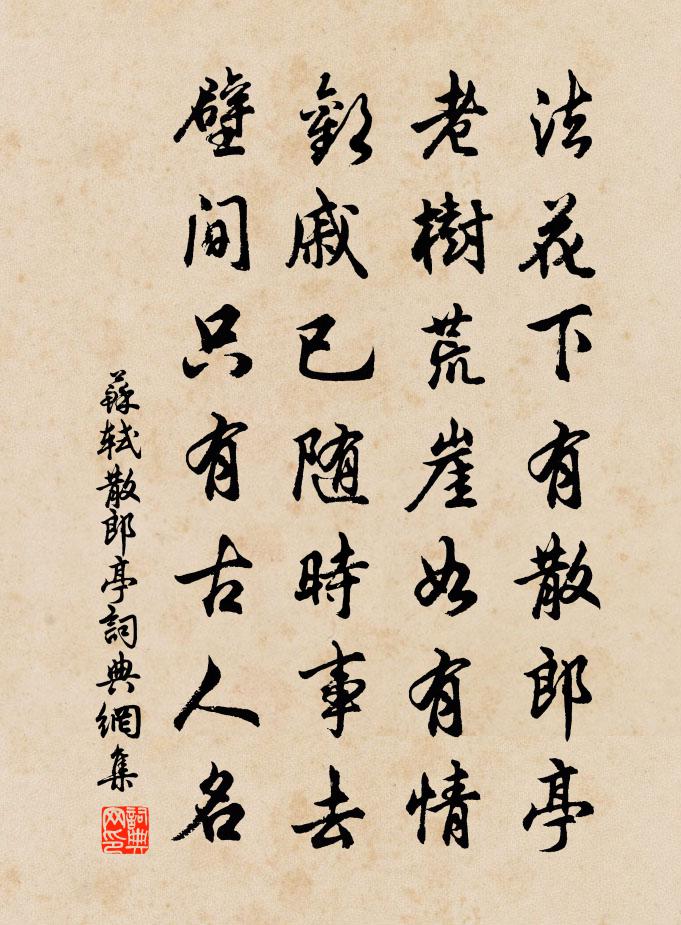 法花下有散郎亭
老樹荒崖如有情
歡戚已随時事去
壁间只有古人名
蘇軾散郎亭詞典網集
詞典网印